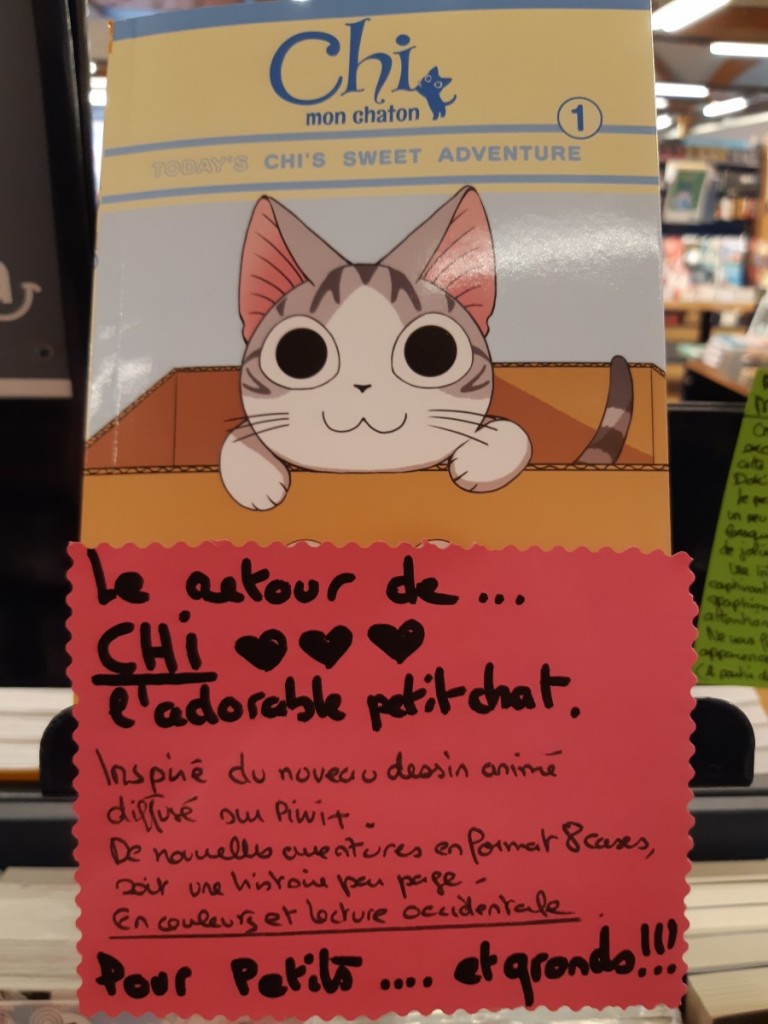 Chi
mon chaton
1
TODAY'S CHI'S SWEET ADVENTURE
Le retour de ...
CHi ♥♥♥
l'adorable petit chat.
Inspiré du nouveau dessin animé
diffusé sur Piwi+.
De nouvelles aventures en format 8 cases,
soit une histoire par page -
En couleurs et lecture occidentale.
Pour Petits .... et grands!!!